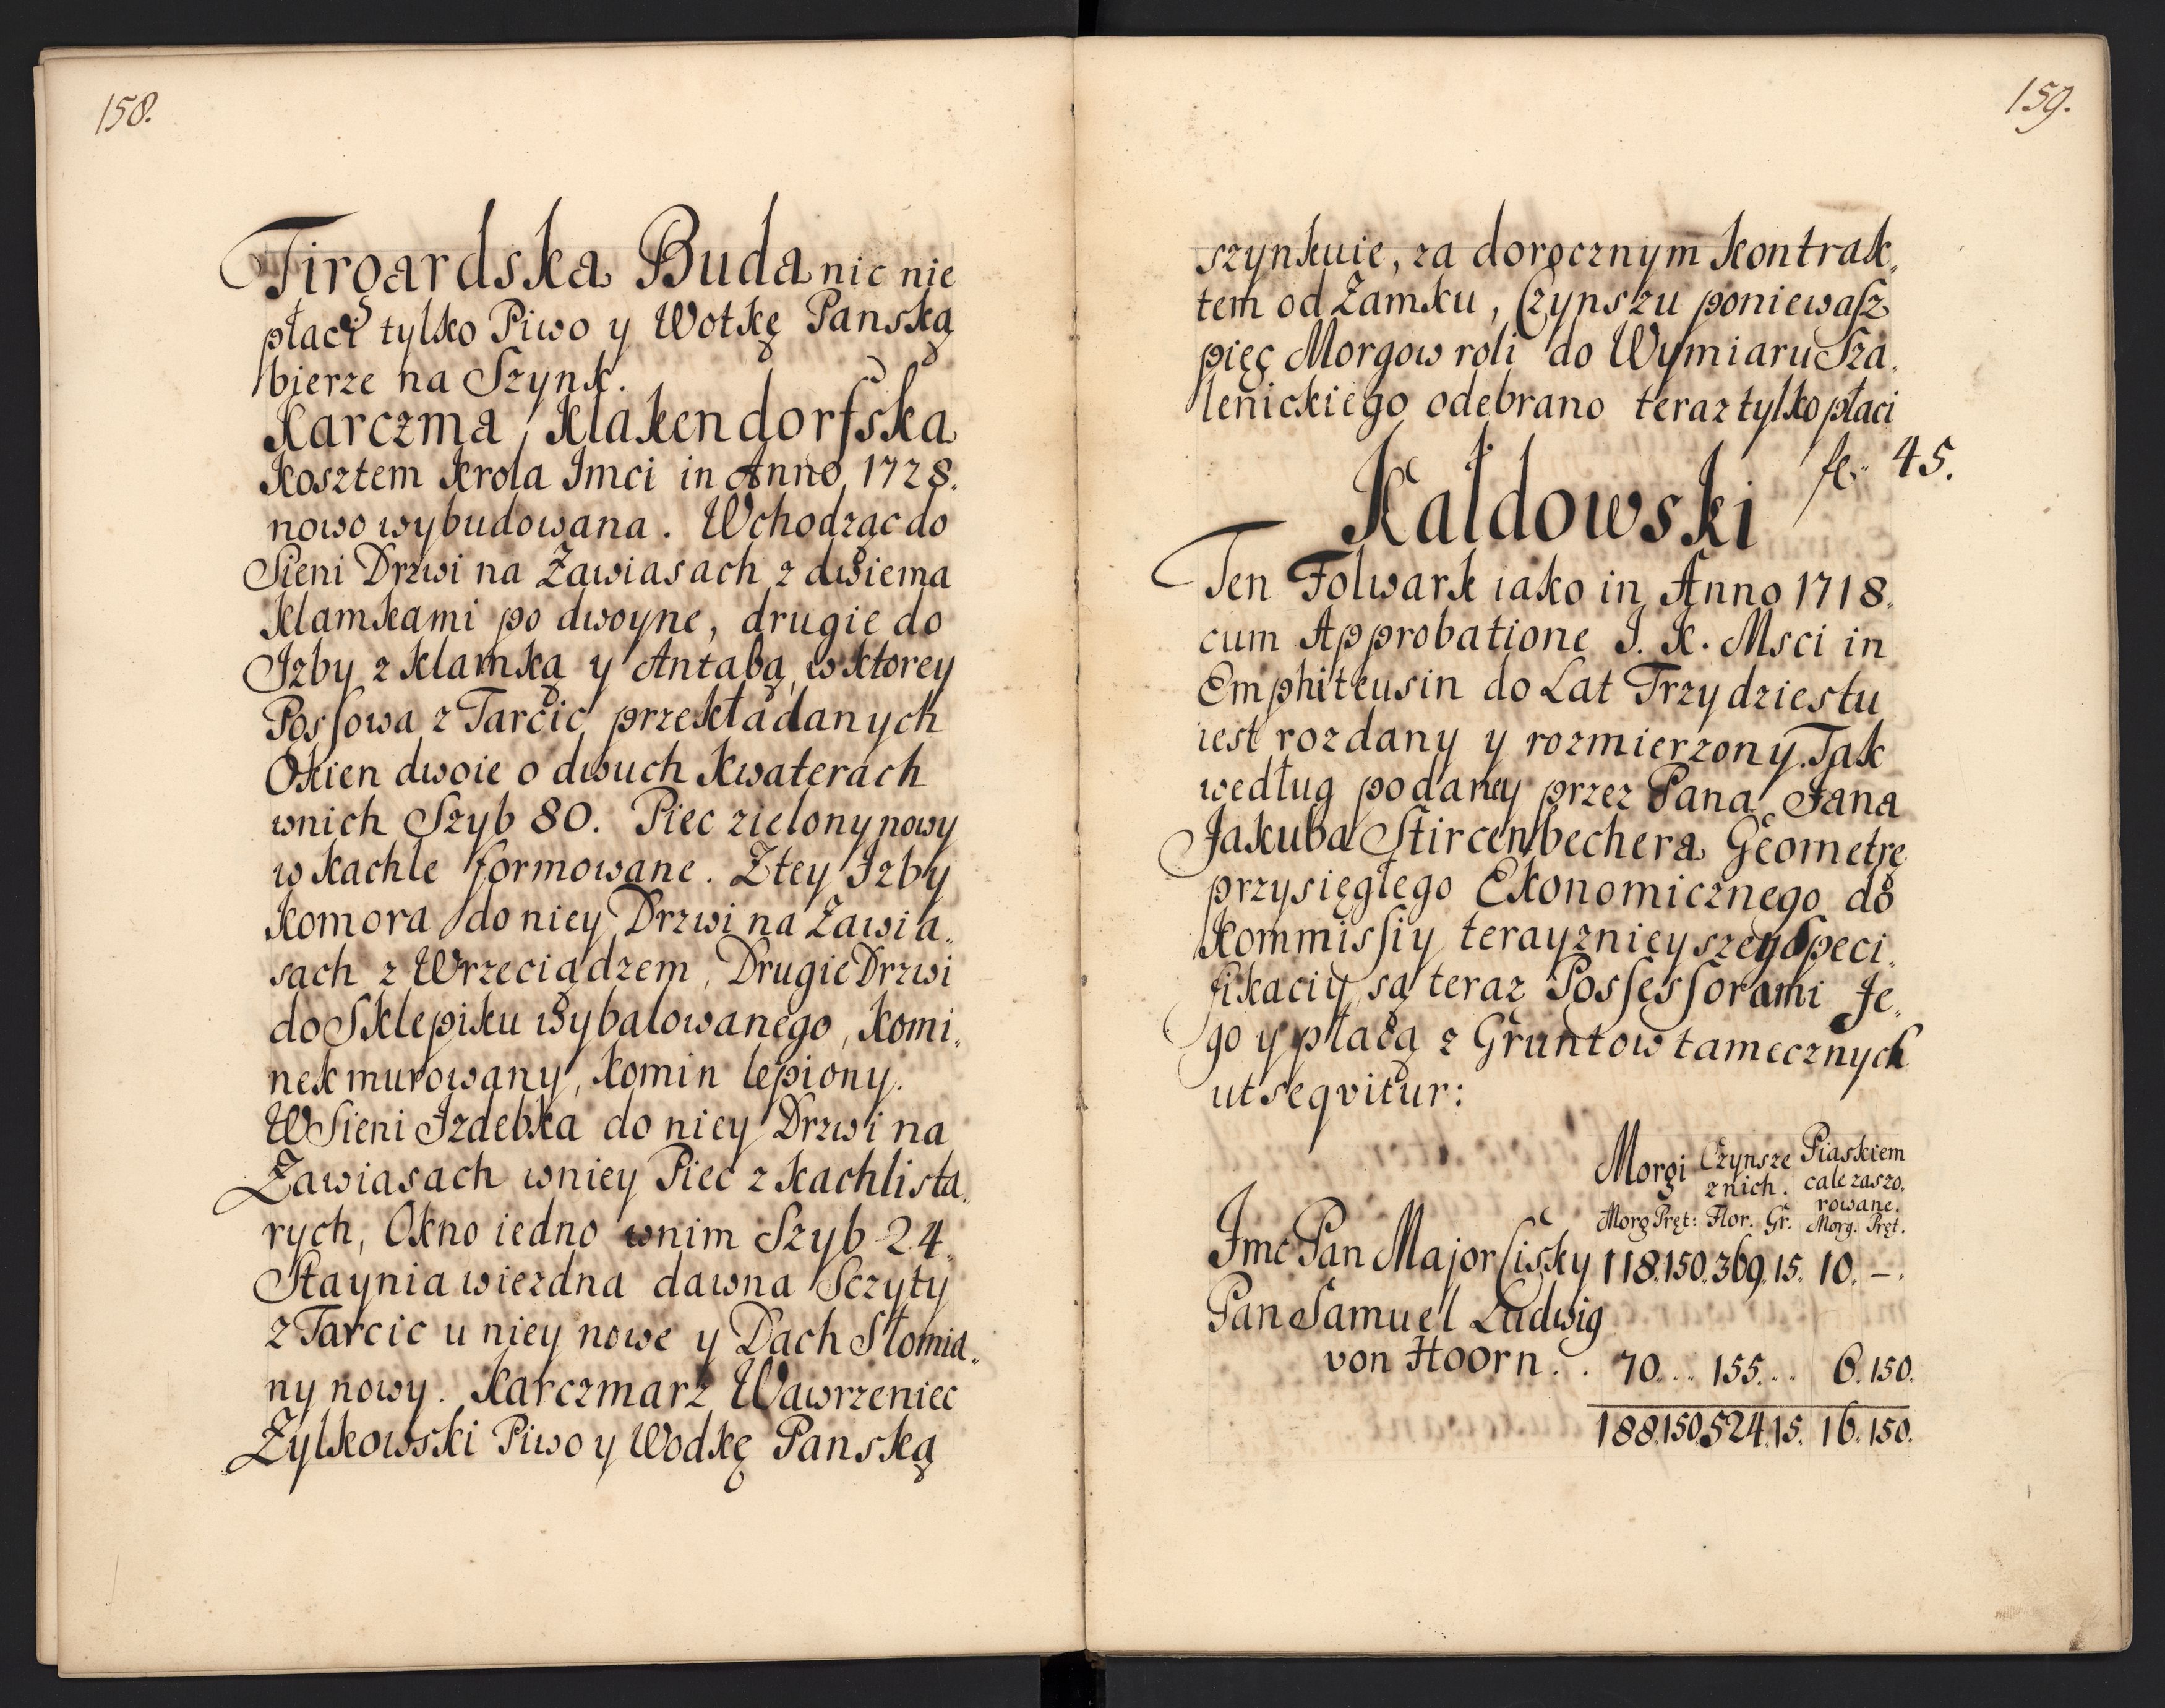 158.
Tirgardska Buda nic nie
płaci tylko Piwo y Wotkę Panską
bierze na Szynk.
Karczma Klakendorfska
Kosztem Krola Jmci in Anno 1728.
nowo wybudowana. Wchodząc do
Sieni Drzwi na Zawiasach z dwiema
Klamkami po dwoyne, drugie do
Jzby z Klamką y Antabą, w ktorey
Possowa z Tarcic przekładanych
Okien dwoie o dwuch Kwaterach
wnich Szyb 80. Piec zielony nowy
w Kachle formowane. Z tey Jzby
Komora do niey Drzwi na Zawia„
sach z Wrzeciądzem, Drugie Drzwi
do Sklepiku wybalowanego, Komi„
nek murowany, Komin lepiony.
W Sieni Jzdebka do niey Drzwi na
Zawiasach wniey Piec z Kachli sta„
rych, Okno iedno wnim Szyb 24.
Staynia wiezdna dawna Sczyty
z Tarcic u niey nowe y Dach Słomia„
ny nowy. Karczmarz Wawrzeniec
Zylkowski Piwo y Wodkę Panską
159.
szynkuie, za dorocznym Kontrak„
tem od Zamku, Czynszu poniewasz
pięć Morgow roli do Wymiaru Sza„
lenickiego odebrano teraz tylko płaci
fl. 45.
Kałdowski
Ten Folwark iako in Anno 1718.
cum Approbatione J. K. Msci in
Emphiteusin do Lat Trzydziestu
iest rozdany y rozmierzony. Tak
według podaney przez Pana Jana
Jakuba Stircenbechera Geometrę
przysięgłego Ekonomicznego do
Kommissiy terayznieyszey Speci„
fikaciy są teraz Possessorami Je„
go y płacą z Gruntow tamecznych
ut seqvitur:
Morgi Czynsze Piaskiem
znich. cale zaszo„
rowane.
Morg Pręt: Flor. Gr. Morg. Pręt.
Jmc Pan Major Lisky 118.150.369.15. 10. –.
Pan Samuel Ludwig
von Hoorn . . 70. .. 155. .. 6.150.
188.150.524.15. 16.150.